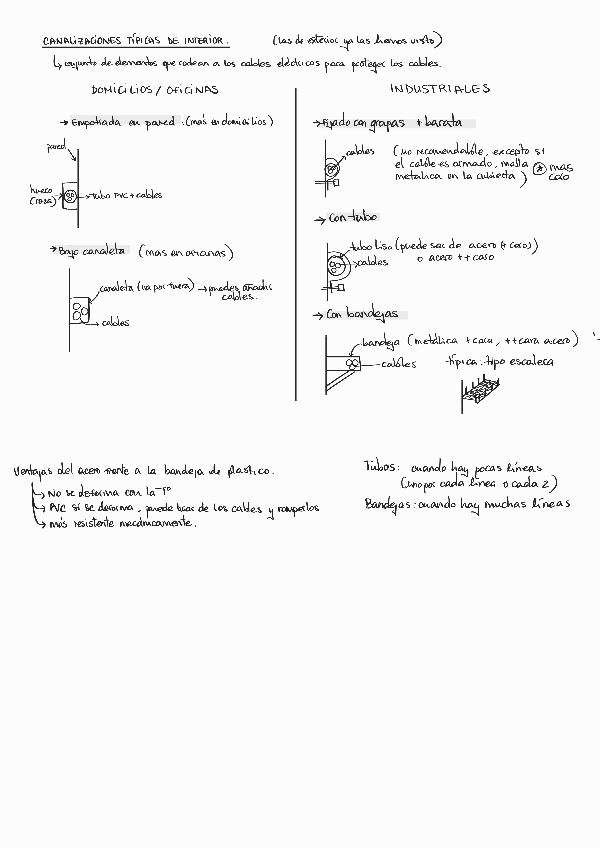 CANALIZACIONES TÍPICAS DE INTERIOR. (Las de exterior ya las hemos visto)
↳ conjunto de elementos que rodean a los cables eléctricos para proteger los cables.
DOMICILIOS / OFICINAS
→ Empotrada en pared. (más en domicilios)
pared
hueco
(roza)
tubo PVC + cables
→ Bajo canaleta (más en oficinas)
canaleta (va por fuera) → puedes añadir
cables.
cables
INDUSTRIALES
→ Fijado con grapas + barata
cables
(no recomendable, excepto si
el cable es armado, malla
metálica en la cubierta)
* más
caro
→ Con tubo
tubo liso (puede ser de acero (+ caro)
o acero ++ caro
cables
→ Con bandejas
bandeja (metálica + cara, ++ cara acero)
cables
típica: tipo escalera
Ventajas del acero frente a la bandeja de plastico.
↳ No se deforma con la Tª
↳ PVC sí se deforma, puede tirar de los cables y romperlos
↳ más resistente mecánicamente.
Tubos: cuando hay pocas líneas
(uno por cada línea o cada 2)
Bandejas: cuando hay muchas líneas